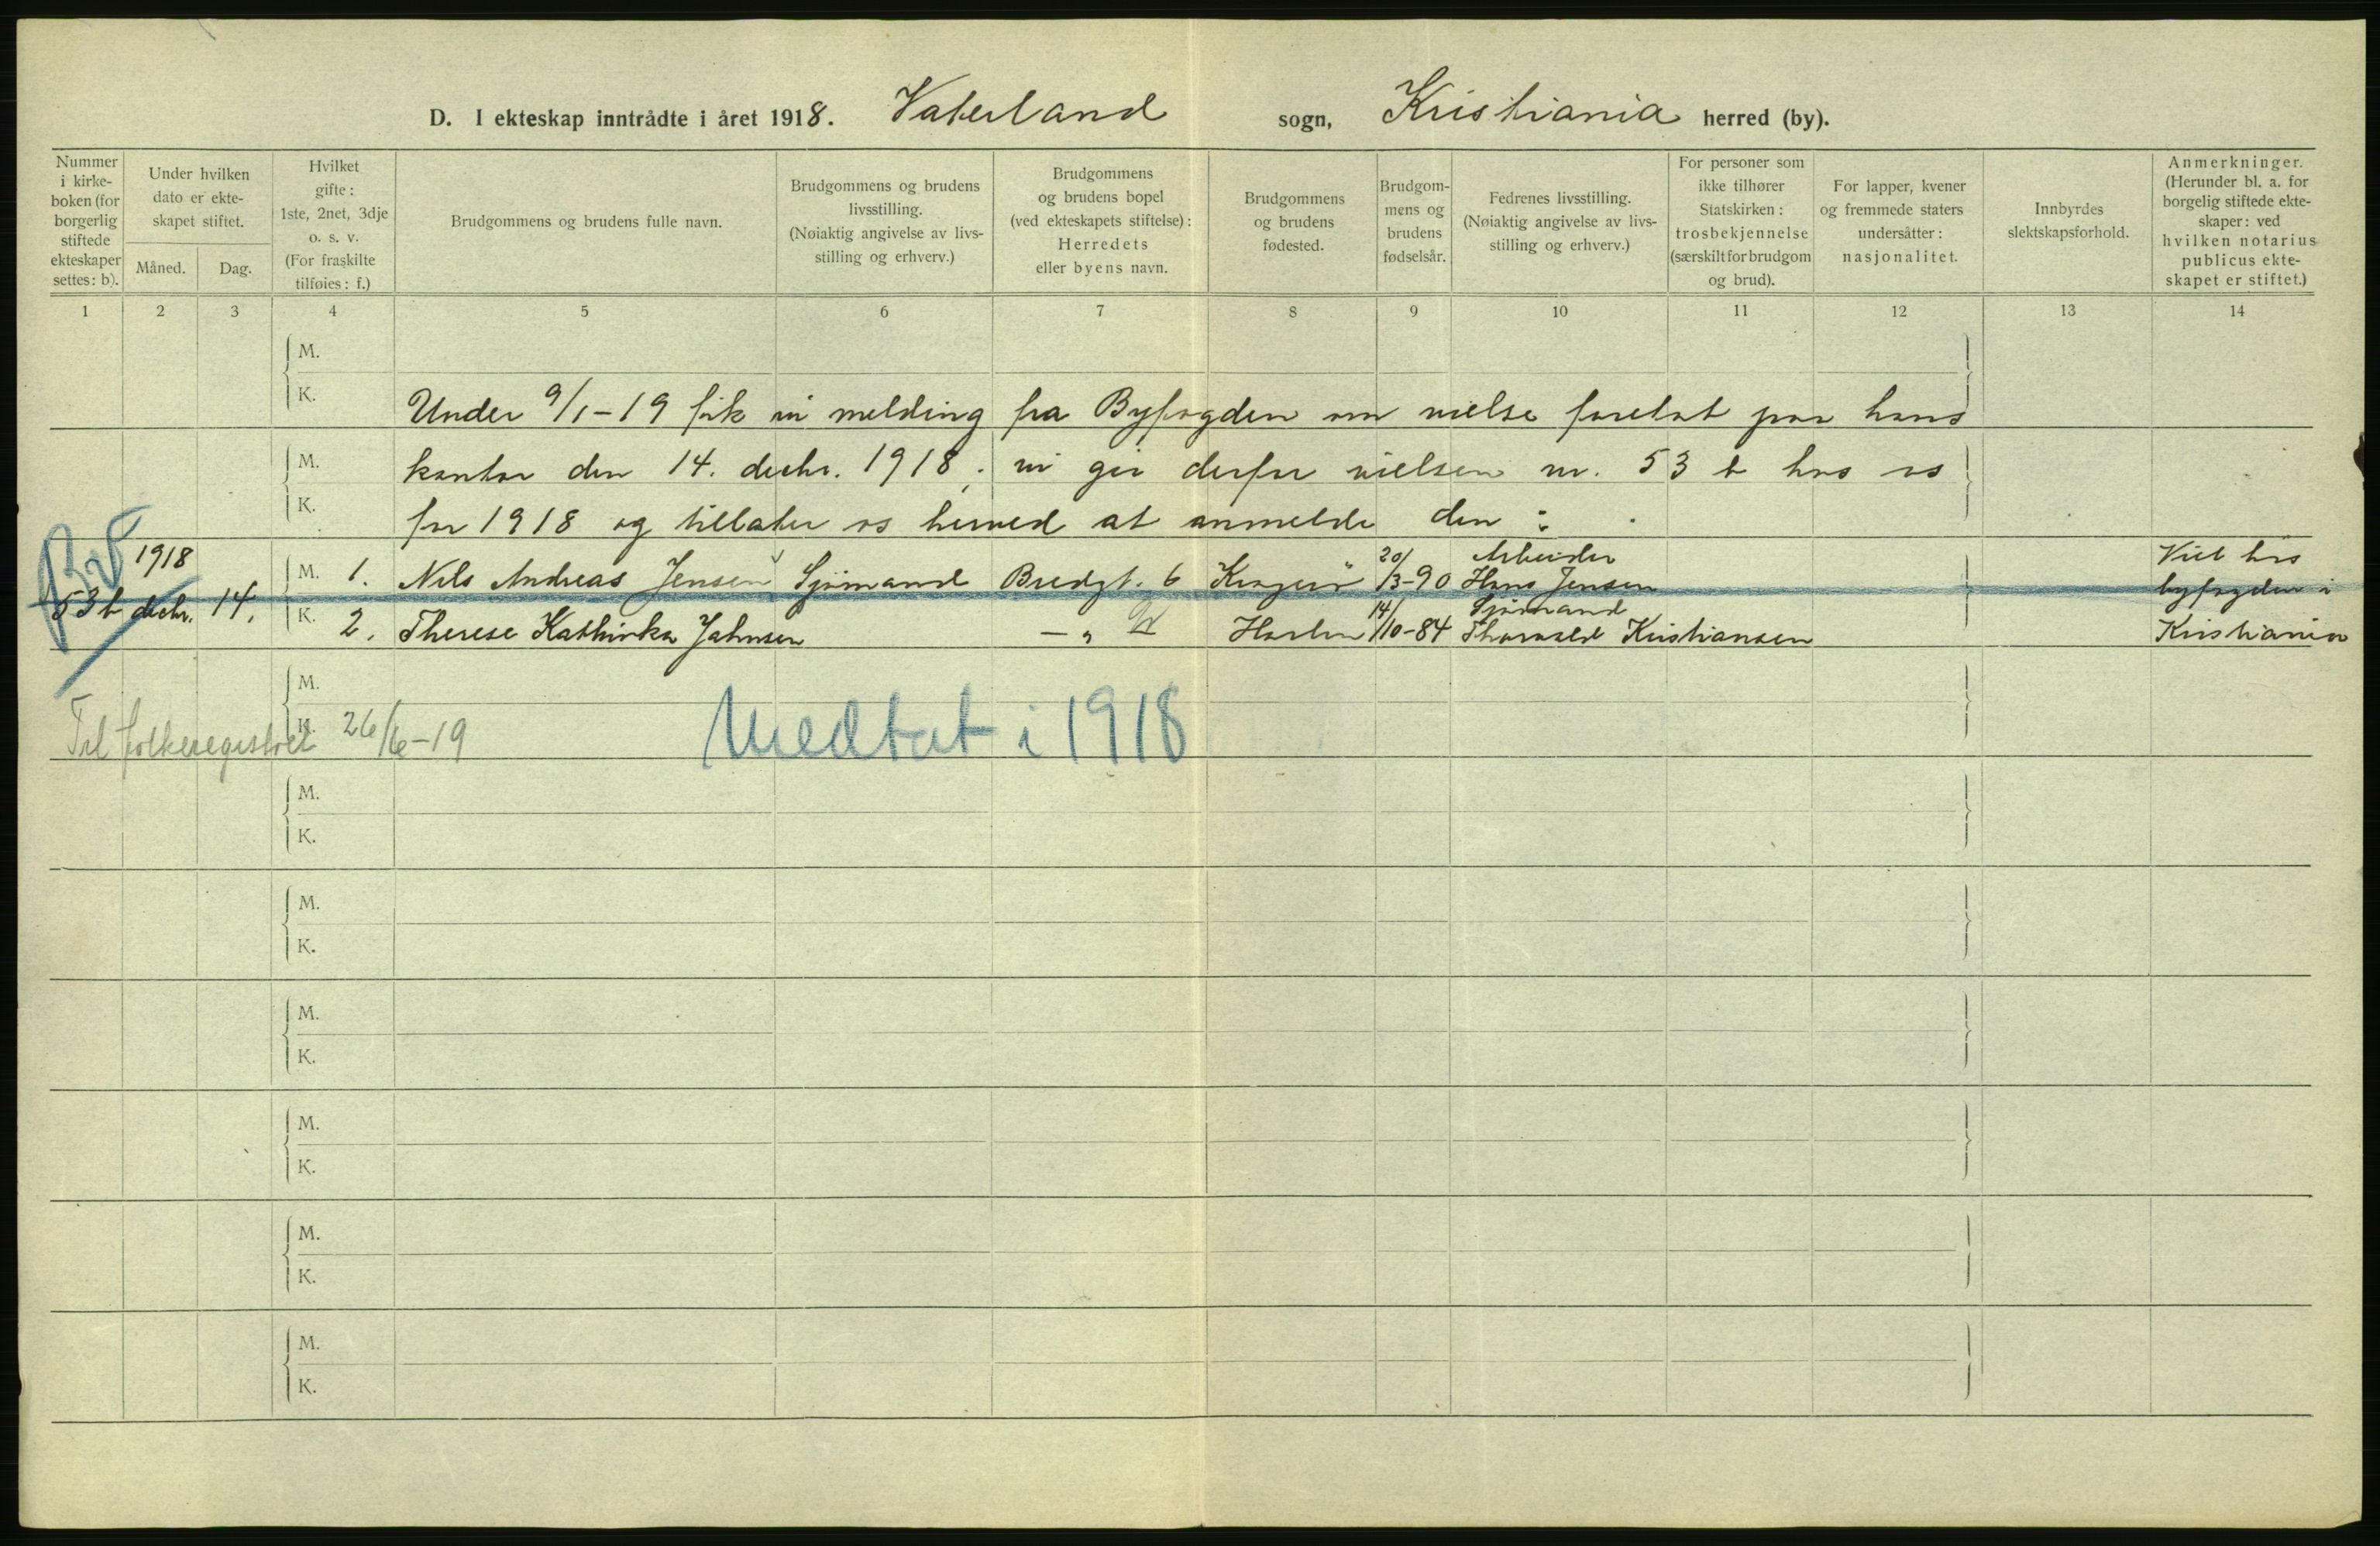 D. I ekteskap inntrådte i året 1918. Vaterland sogn, Kristiania herred (by).
Nummer i kirke-boken (for borgerlig stiftede ekteskaper settes: b).
Under hvilken dato er ekte-skapet stiftet.
Måned.
Dag.
Hvilket gifte: 1ste, 2net, 3dje o. s. v. (For fraskilte tilføies: f.)
Brudgommens og brudens fulle navn.
Brudgommens og brudens livsstilling. (Nøiaktig angivelse av livs-stilling og erhverv.)
Brudgommens og brudens bopel (ved ekteskapets stiftelse): Herredets eller byens navn.
Brudgommens og brudens fødested.
Brudgom-mens og brudens fødselsår.
Fedrenes livsstilling. (Nøiaktig angivelse av livs-stilling og erhverv.)
For personer som ikke tilhører Statskirken: trosbekjennelse (særskilt for brudgom og brud).
For lapper, kvener og fremmede staters undersåtter: nasjonalitet.
Innbyrdes slektskapsforhold.
Anmerkninger. (Herunder bl. a. for borgelig stiftede ekte-skaper: ved hvilken notarius publicus ekte-skapet er stiftet.)
1 2 3 4 5 6 7 8 9 10 11 12 13 14
M.
K.
Under 9/1-19 fik vi melding fra Byfogden om vielse foretat paa hans
M.
kontor den 14. decbr. 1918; vi gir derfor vielsen nr. 53 b hos os
K.
for 1918 og tillater os herved at anmelde den :
1918
53 b decbr. 14.
M. 1. Nils Andreas Jensen Sjømand Bredgt. 6 Kragerö 20/3-90 Arbeider Hans Jensen
K. 2. Therese Kathinka Jahnsen — " — 14/10-84 Sjømand Thorvald Kristiansen
Viet hos
byfogden i
Kristiania
M.
K.
Til folkeregistret 26/6-19
Medtat i 1918
M.
K.
M.
K.
M.
K.
M.
K.
M.
K.
M.
K.